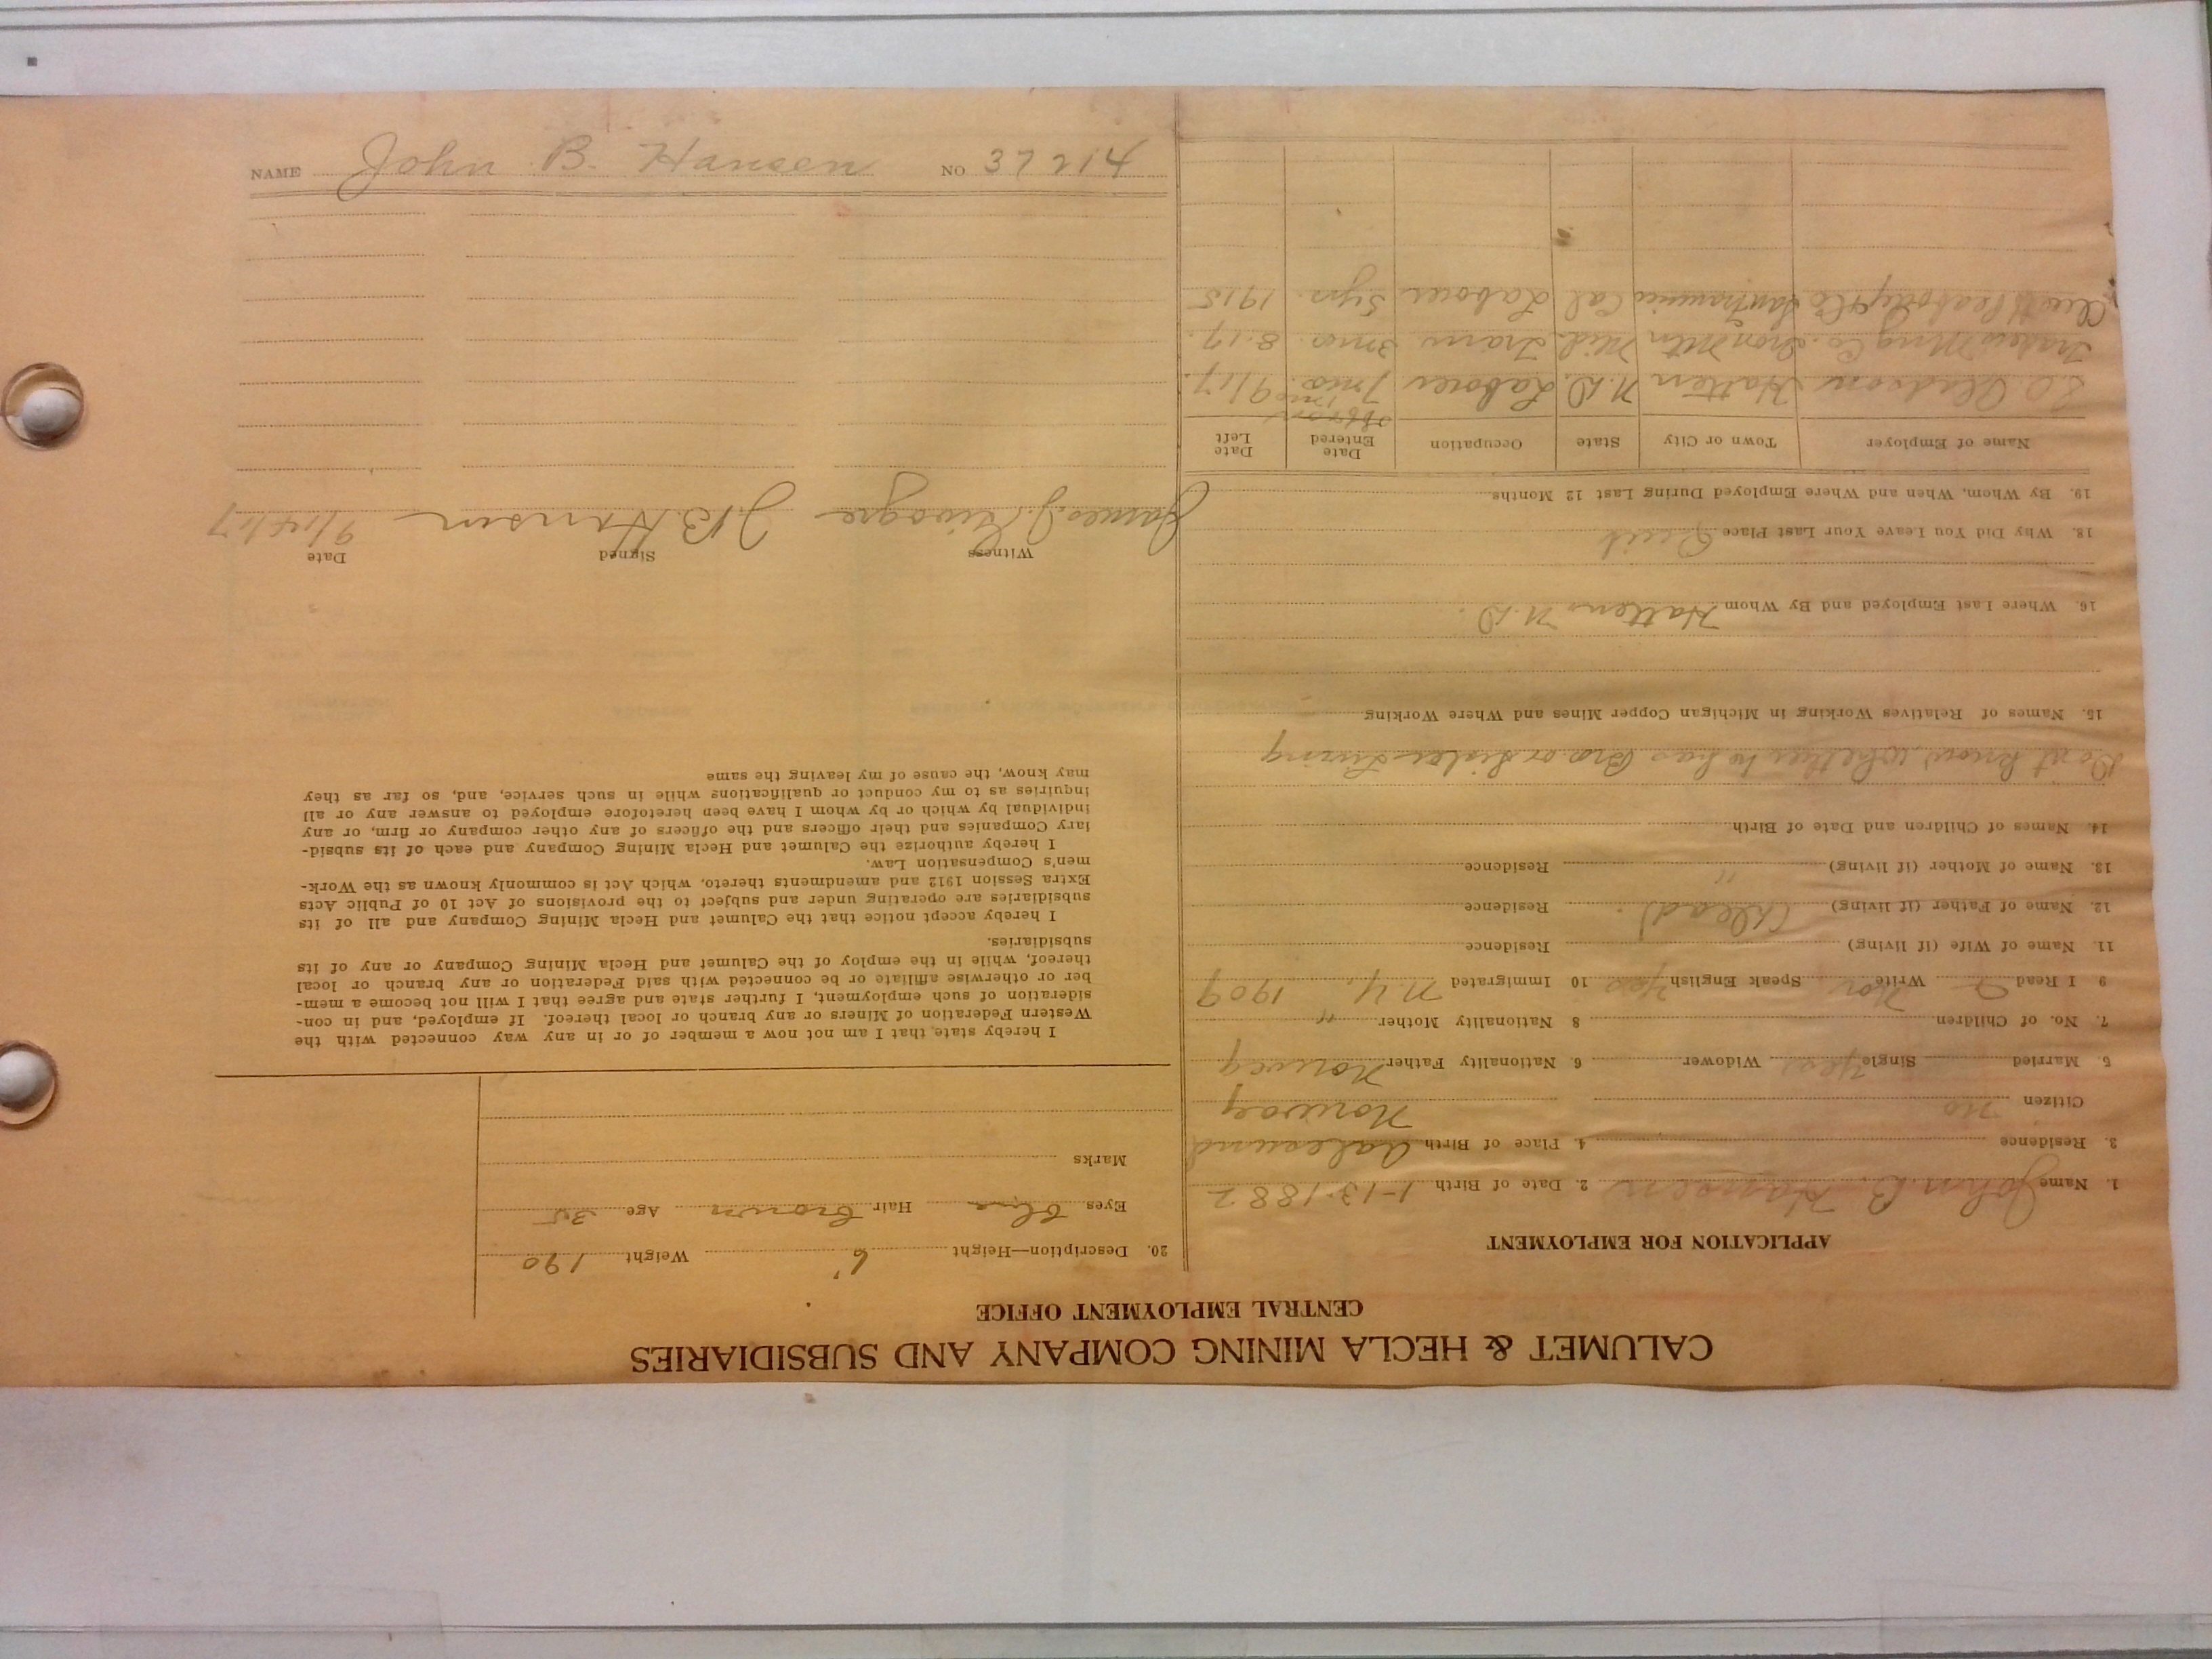 CALUMET & HECLA MINING COMPANY AND SUBSIDIARIES
CENTRAL EMPLOYMENT OFFICE
APPLICATION FOR EMPLOYMENT
1. Name John B. Hansen 2. Date of Birth 1-13-1882
3. Residence 4. Place of Birth Aalesund
Citizen no Norway
5. Married Single yes Widower 6. Nationality Father Norway
7. No. of Children 8 Nationality Mother "
9 I Read Write Nor. Speak English yes 10 Immigrated N.Y. 1909
11. Name of Wife (if living) Residence
12. Name of Father (if living) (Dead) Residence
13. Name of Mother (if living) " Residence
14. Names of Children and Date of Birth
Dont know whether he has Bro. or Sister Living
15. Names of Relatives Working in Michigan Copper Mines and Where Working
16. Where Last Employed and By Whom Hatten N.D.
18. Why Did You Leave Your Last Place Quit
19. By Whom, When and Where Employed During Last 12 Months
Name of Employer Town or City State Occupation Date Entered Date Left
Hatten N.D. Laborer 1 mo 9/17.
Mng Co. Iron Mtn Mich Tram 3 mos. 8-17.
Peabody & Co San Francisco Cal Laborer 5 yrs. 1915
20. Description—Height 6' Weight 190
Eyes blue Hair brown Age 35
Marks
I hereby state that I am not now a member of or in any way connected with the
Western Federation of Miners or any branch or local thereof. If employed, and in con-
sideration of such employment, I further state and agree that I will not become a mem-
ber or otherwise affiliate or be connected with said Federation or any branch or local
thereof, while in the employ of the Calumet and Hecla Mining Company or any of its
subsidiaries.
I hereby accept notice that the Calumet and Hecla Mining Company and all of its
subsidiaries are operating under and subject to the provisions of Act 10 of Public Acts
Extra Session 1912 and amendments thereto, which Act is commonly known as the Work-
men's Compensation Law.
I hereby authorize the Calumet and Hecla Mining Company and each of its subsid-
iary Companies and their officers and the officers of any other company or firm, or any
individual by which or by whom I have been heretofore employed to answer any or all
inquiries as to my conduct or qualifications while in such service, and, so far as they
may know, the cause of my leaving the same
Witness Signed Date
James J. J. B. Hansen 9/14/17
NAME John B. Hansen NO 37214